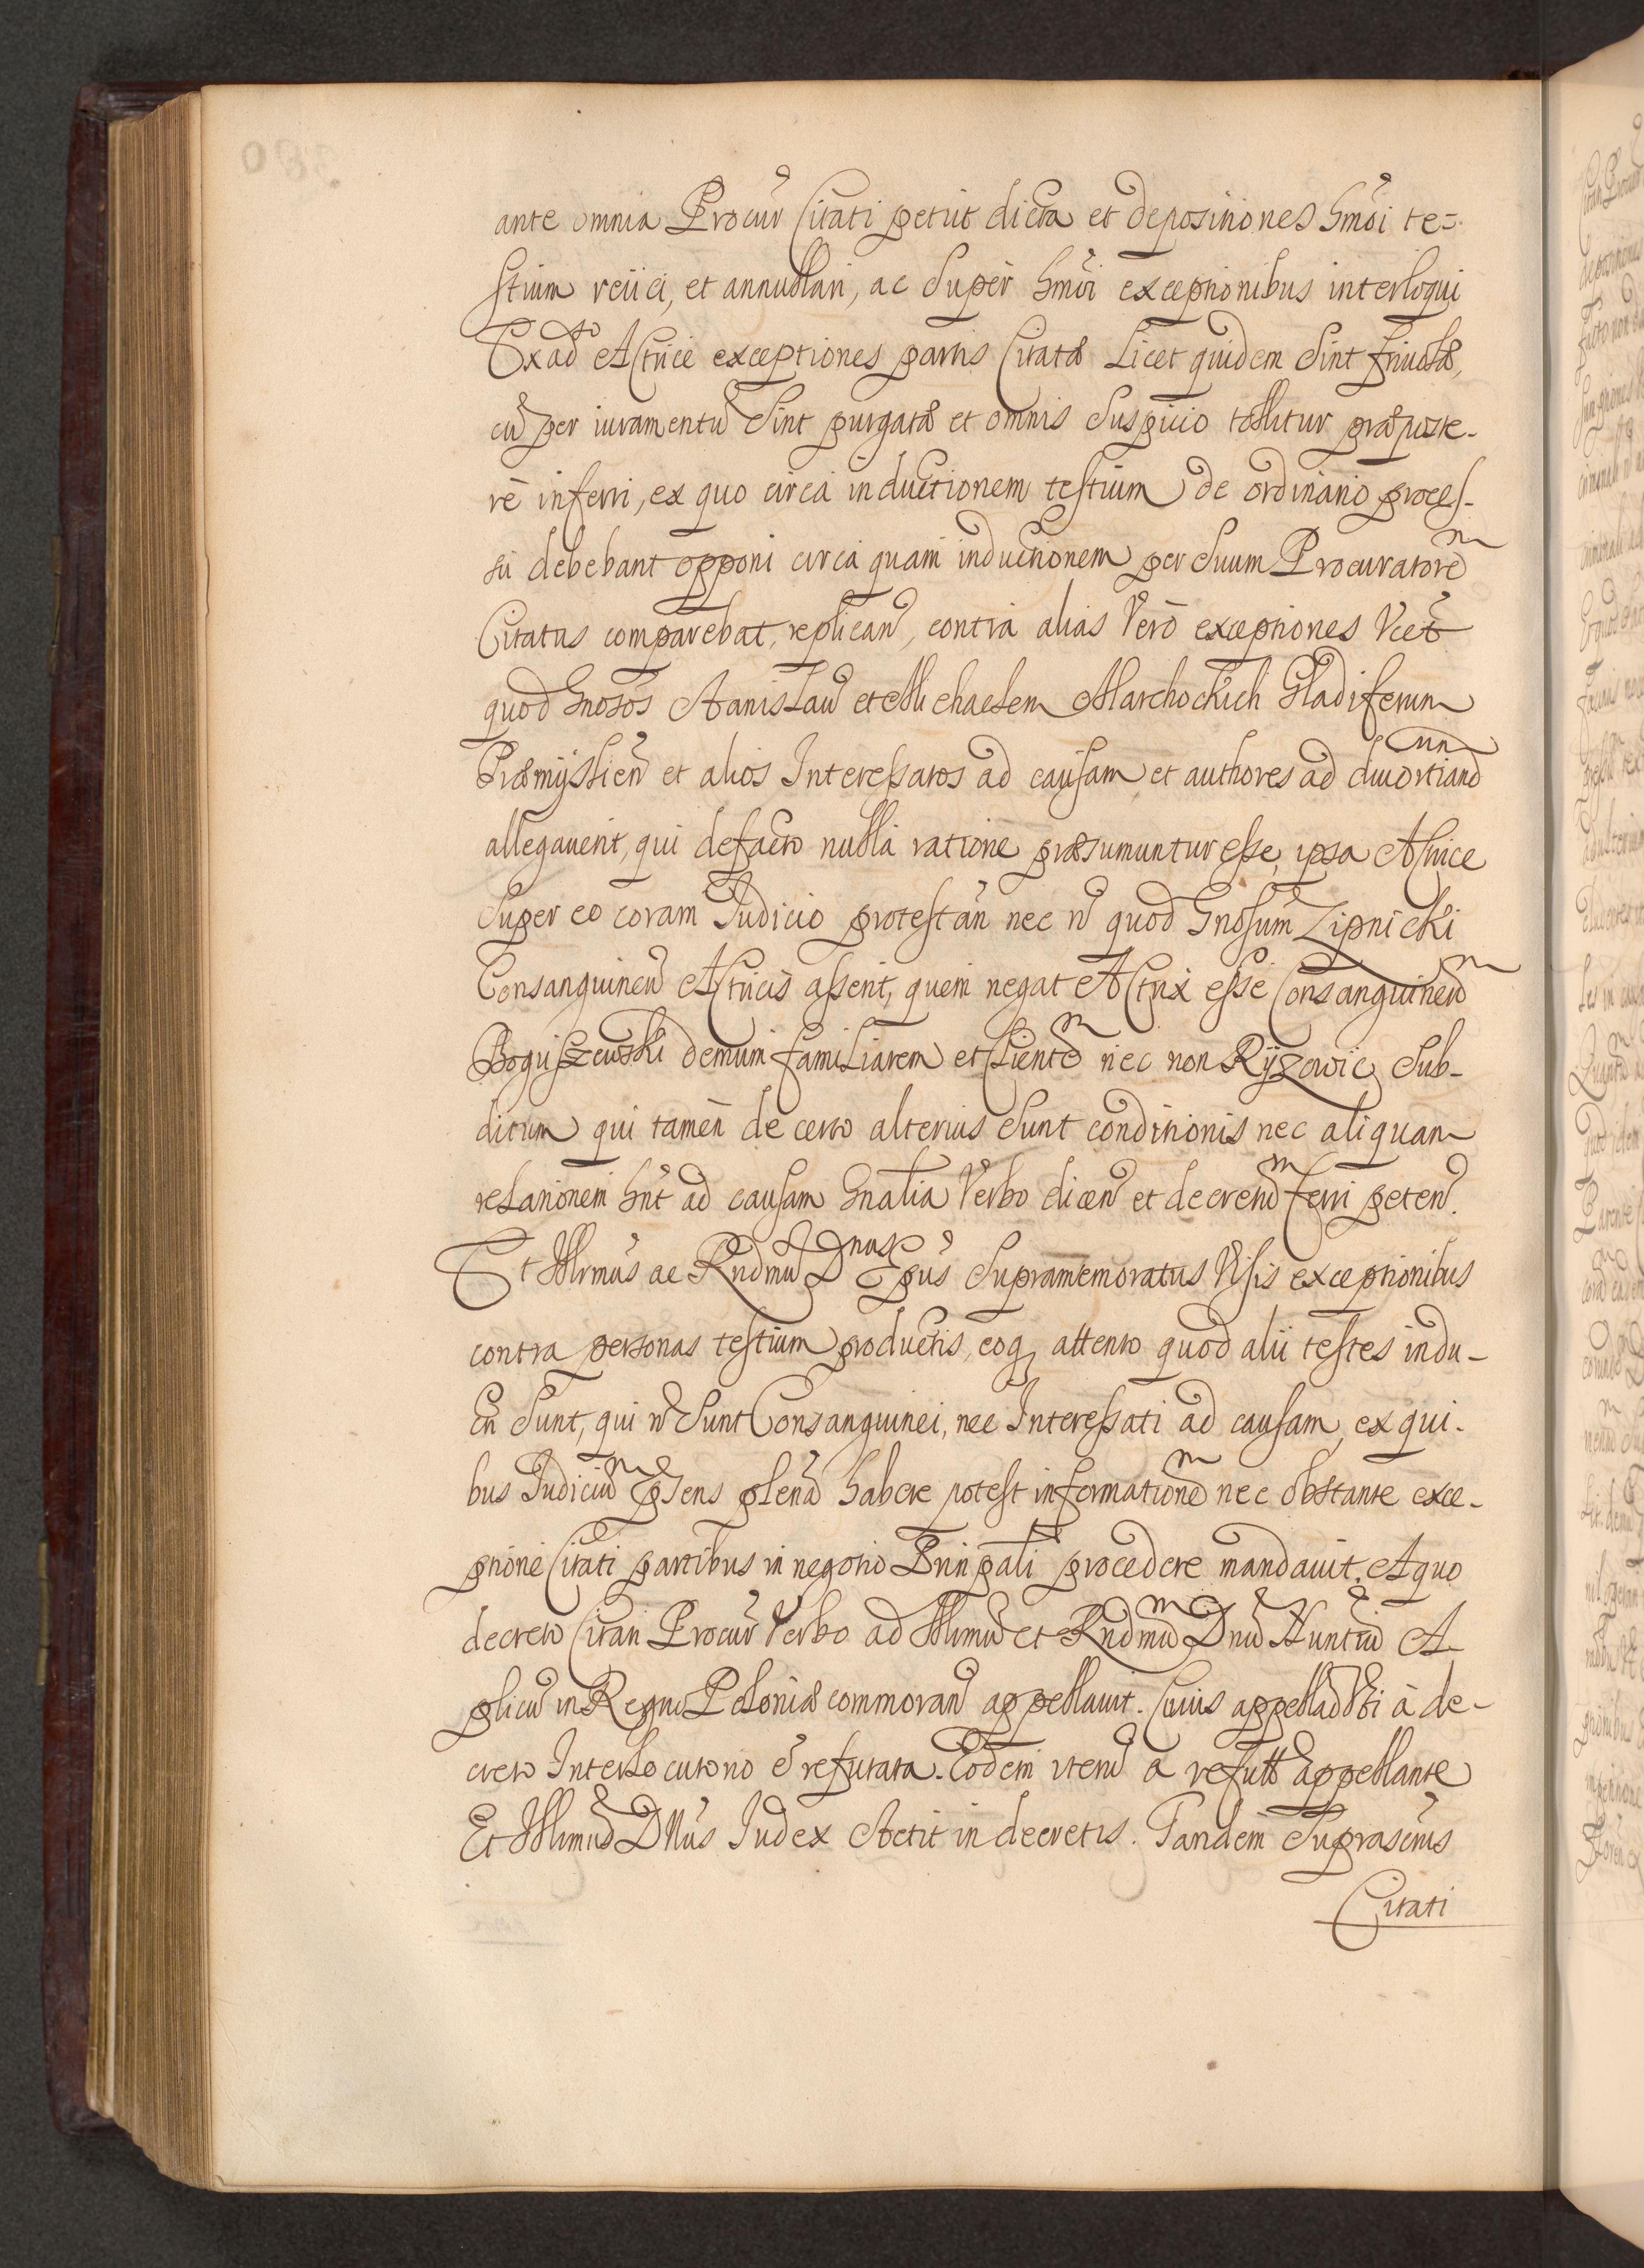 ante omnia Procur̃ Citati petijt dicta et depositiones hm̃oi te=
stium reiici, et annullari, ac super hm̃oi exceptionibus interloqui
Ex adso Actrice exceptiones partis Citatæ Licet quidem sint friuolæ,
cũ per iuramentũ sint purgatæ et omnis suspicio tollitur præposte-
rè inferri, ex quo circa inductionem testium de ordinario proces-
su debebant opponi circa quam inductionem per suum Procuratorem
Citatus comparebat, replican̄, contra alias Verò exceptiones Vcet
quod Gnosos Stanislaũ et Michaelem Marchockich Gladiferum
Præmysslien̄ et alios Interessatos ad causam et authores ad diuortiandum
allegauerit, qui defacto nulla ratione præsumuntur esse, ipsa Actrice
super eo coram Iudicio protestan̄ nec nō quod Gnosum Lipnicki
Consanguineũ Actricis asserit, quem negat Actrix esse Consanguineum
Boguszewski demum familiarem et Clientem nec non Ryzowic sub-
ditum qui tamen de certo alterius sunt conditionis nec aliquam
relationem hñt ad causam Gnalia Verbo dicen̄ et decretum ferri peten̄.
Et Illrmus ac Rndmus Dnus Epus supramemoratus Visis exceptionibus
contra personas testium productis, eoq attento quod alii testes indu-
cti sunt, qui nō sunt Consanguinei, nec Interessati ad causam, ex qui-
bus Iudicium pñsens plenã habere potest informationem nec obstante exce-
ptione Citati partibus in negotio Prinpali procedere mandauit. A quo
decreto Citati Procur̃ Verbo ad Illrmũ et Rndmum Dnũ Nuntiũ A-
plicũ in Regno Poloniæ commoran̄ appellauit. Cuius appellao Vti à de-
creto Interlocutorio ẽ refutata. Eodem iterũ a refutt appellante
Et Illrmus DNus Iudex stetit in decretis. Tandem suprascrius
Citati